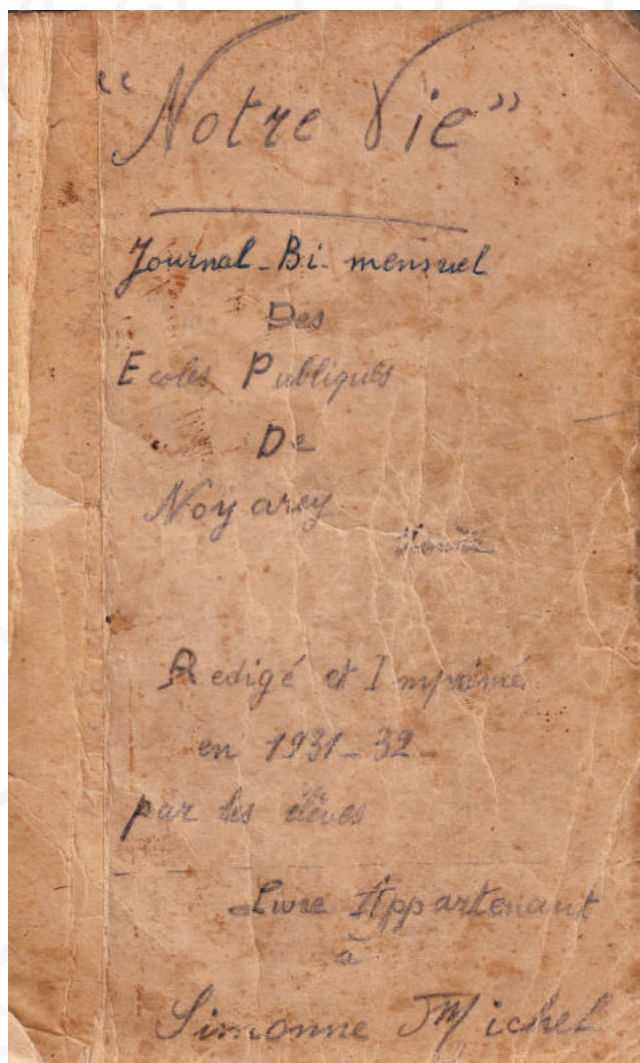 "Notre Vie"
Journal-Bi-mensuel
Des
Ecoles Publiques
De
Noyarey
Redigé et Imprimé
en 1931-32-
par les élèves
Livre Appartenant
à
Simonne Michel